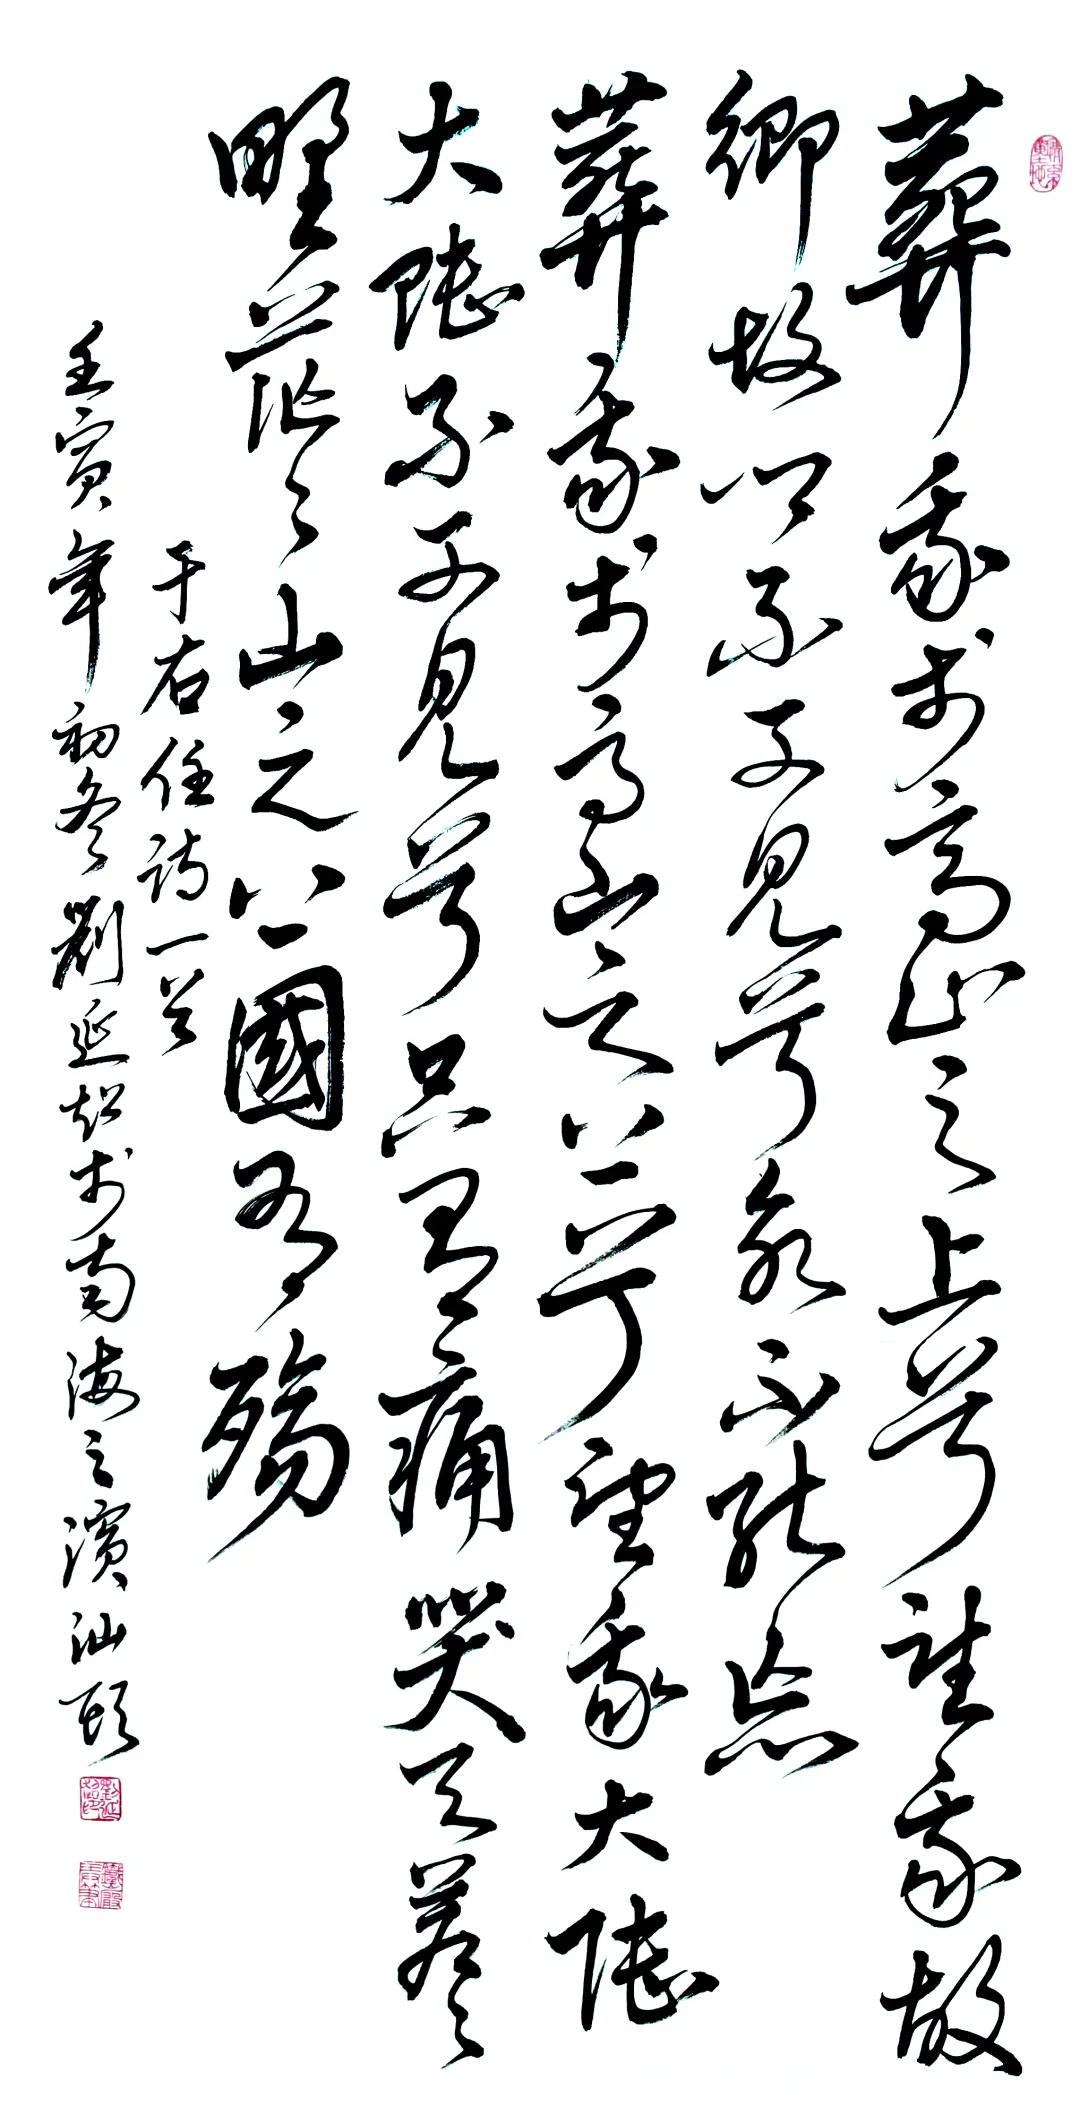 葬我於高山之上兮望我故
鄉故鄉不可見兮永不能忘
葬我於高山之上兮望我大陸
大陸不可見兮只有痛哭天蒼々
野茫々山之上國有殤
于右任詩一首
壬寅年初冬劉延超於南海之濱汕頭